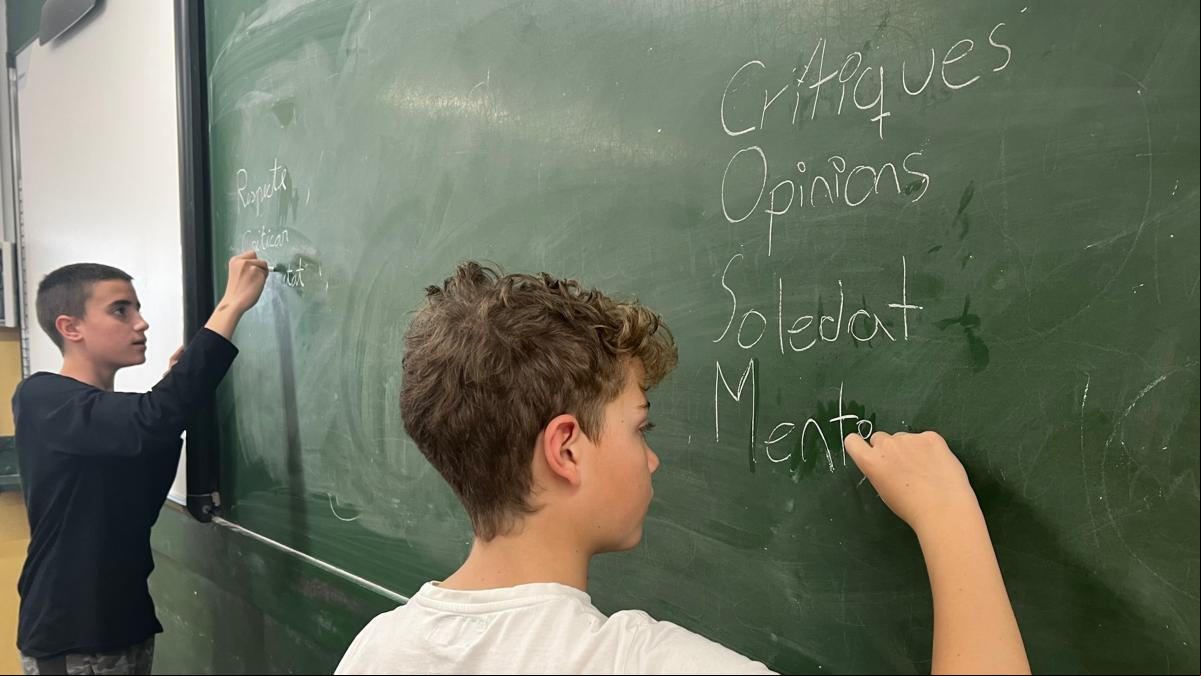 Respecte
Critican
Critiques
Opinions
Soledat